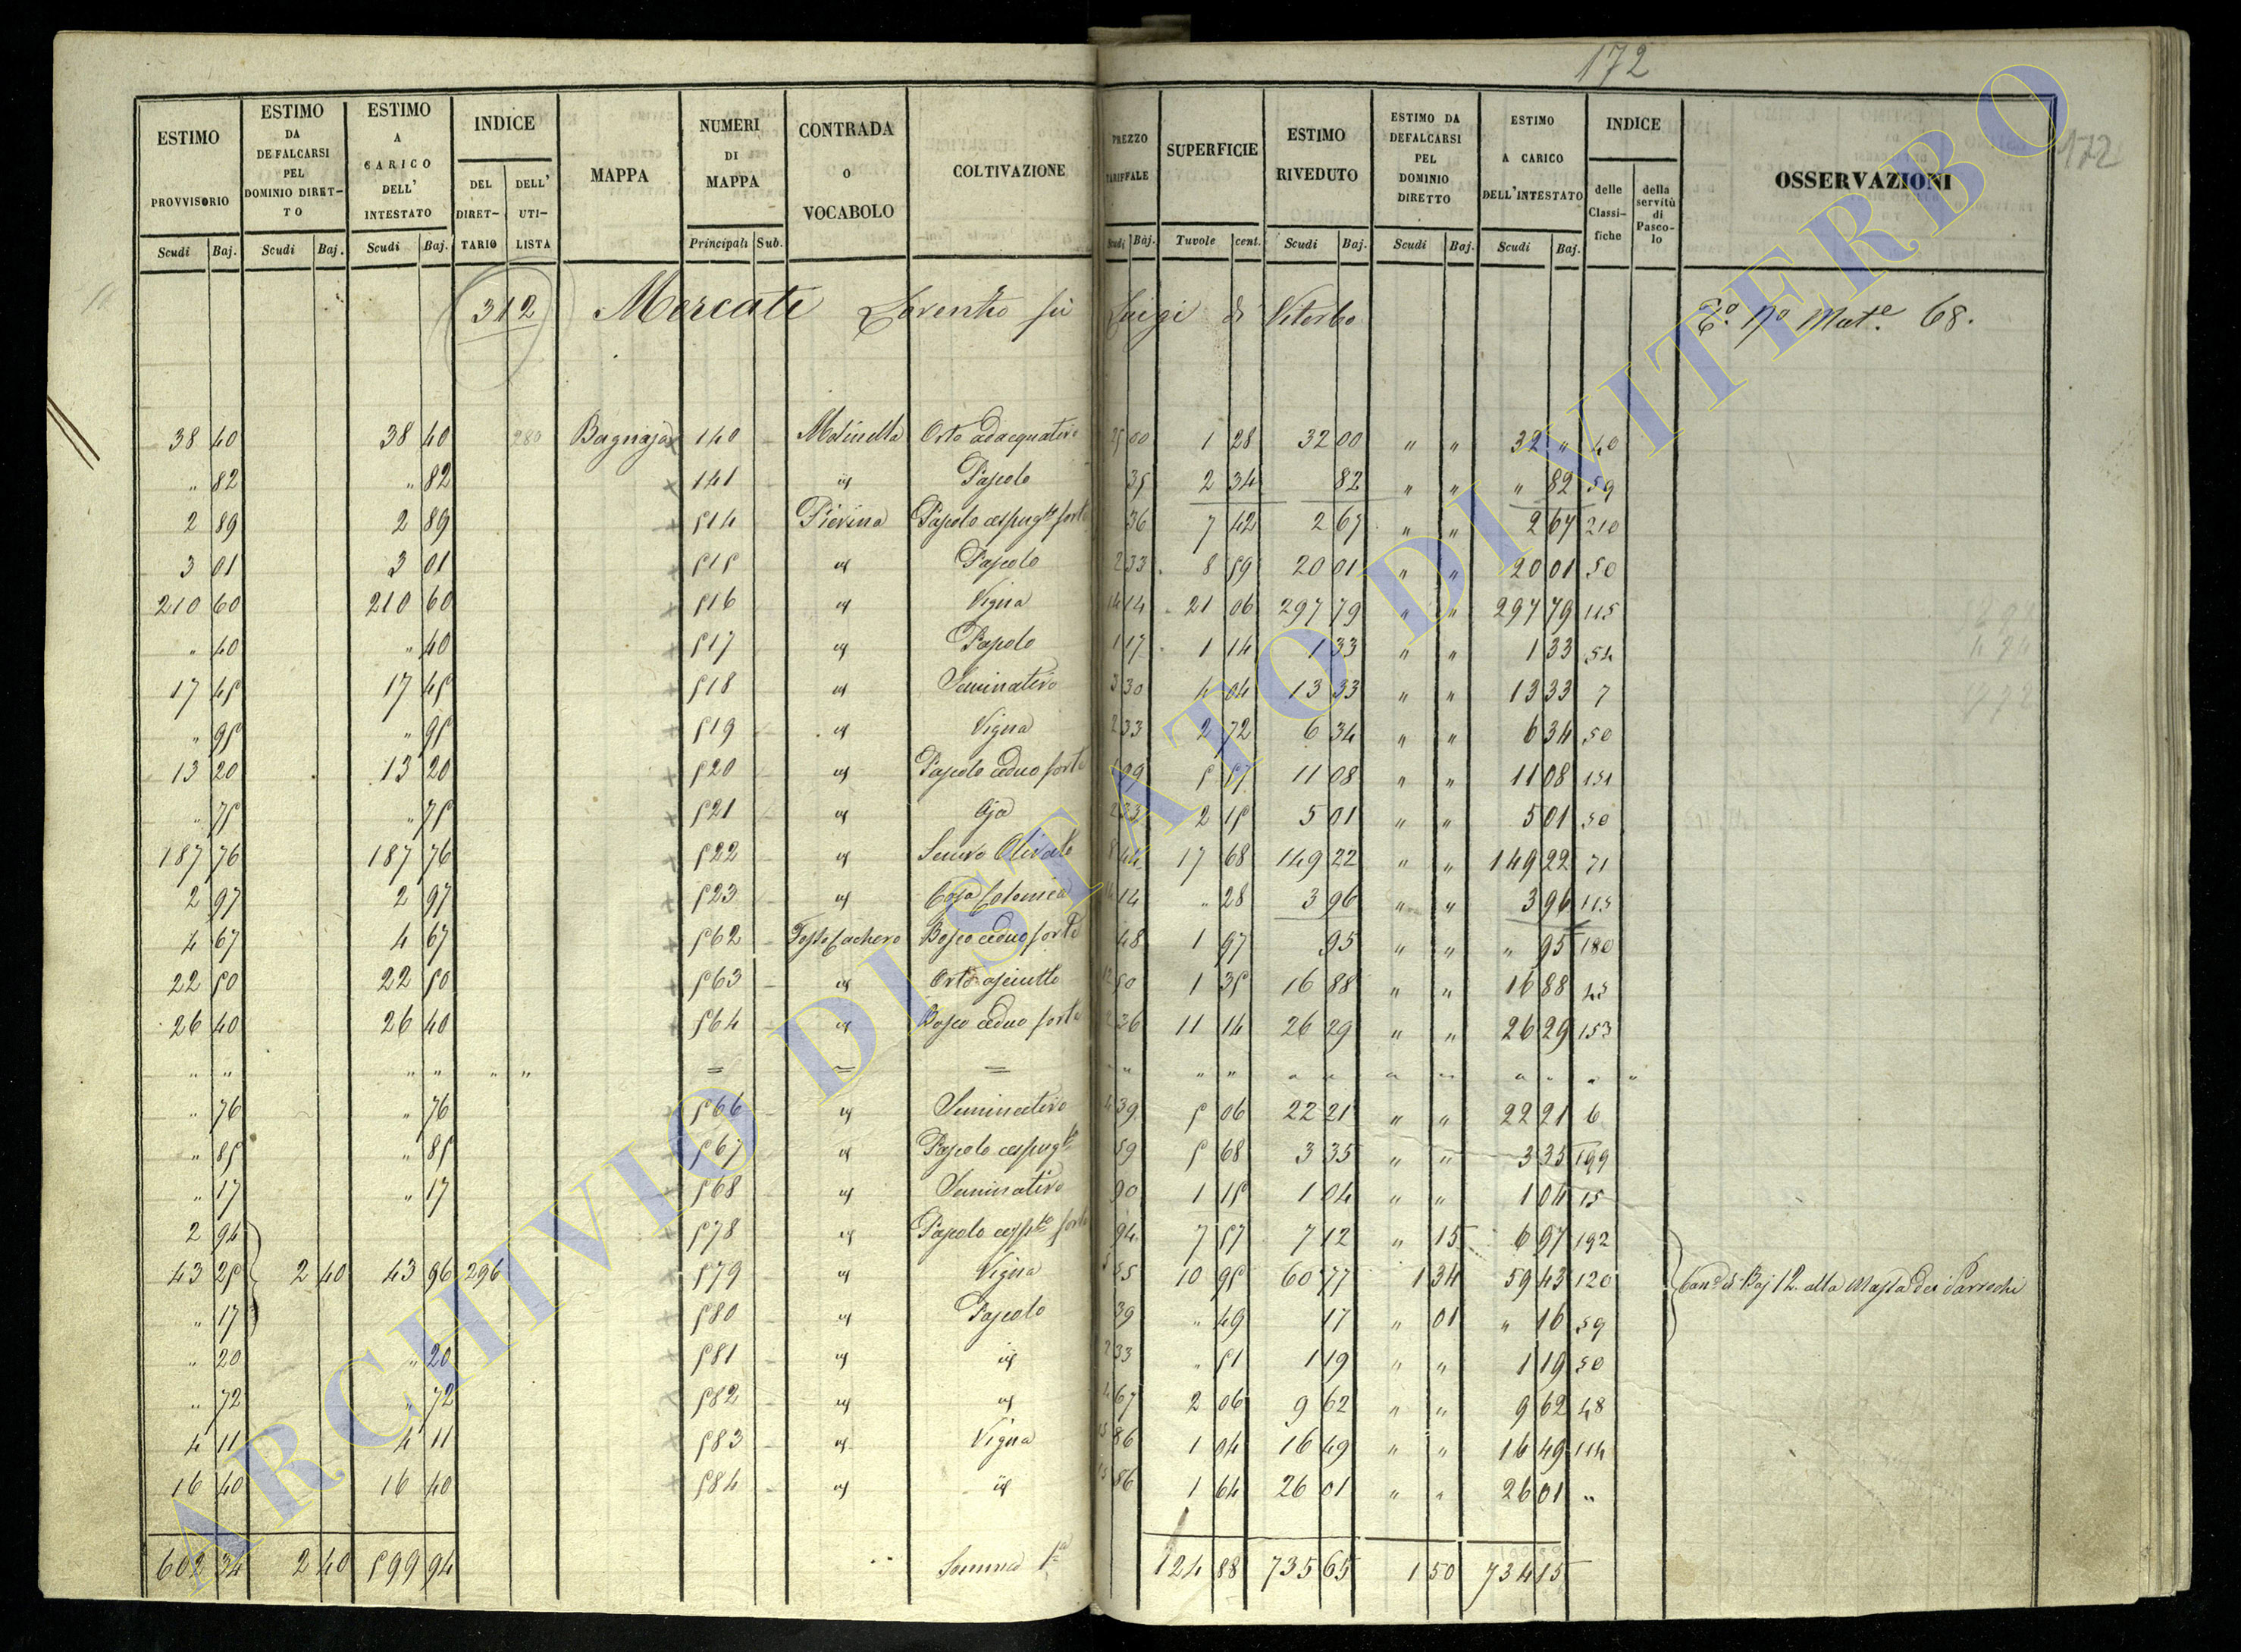 172
172
ESTIMO PROVVISORIO Scudi Baj.
ESTIMO DA DEFALCARSI PEL DOMINIO DIRETTO Scudi Baj.
ESTIMO A CARICO DELL' INTESTATO Scudi Baj.
INDICE DEL DIRETTARIO DELL' UTILISTA
MAPPA
NUMERI DI MAPPA Principali Sub.
CONTRADA O VOCABOLO
COLTIVAZIONE
PREZZO TARIFFALE Scudi Baj.
SUPERFICIE Tavole cent.
ESTIMO RIVEDUTO Scudi Baj.
ESTIMO DA DEFALCARSI PEL DOMINIO DIRETTO Scudi Baj.
ESTIMO A CARICO DELL'INTESTATO Scudi Baj.
INDICE delle Classifiche della servitù di Pascolo
OSSERVAZIONI
312 Mercati Lorento fu Luigi di Viterbo 68.
38 40 38 40 280 Bagnaja x 140 Molinella Orto adacquativo 25 00 1 28 32 00 " " 32 " 40
" 82 " 82 x 141 id Pascolo 35 2 34 82 " " " 82 59
2 89 2 89 + 514 Pierina Pascolo cespugto forte 36 7 42 2 67 " " 2 67 210
3 01 3 01 + 515 id Pascolo 2 33 8 59 20 01 " " 20 01 50
210 60 210 60 + 516 id Vigna 14 14 21 06 297 79 " " 297 79 115
" 40 " 40 + 517 id Pascolo 1 17 1 14 1 33 " " 1 33 54
17 45 17 45 + 518 id Seminativo 3 30 4 04 13 33 " " 13 33 7
" 95 " 95 + 519 id Vigna 2 33 2 72 6 34 " " 6 34 50
13 20 13 20 + 520 id Pascolo ceduo forte 99 5 57 11 08 " " 11 08 154
" 75 " 75 + 521 id Aja 2 33 2 15 5 01 " " 5 01 50
187 76 187 76 + 522 id Semvo Olivato 8 44 17 68 149 22 " " 149 22 71
2 97 2 97 + 523 id Casa Colonica 14 14 " 28 3 96 " " 3 96 115
4 67 4 67 + 562 Bosco ceduo forte 48 1 97 95 " " " 95 180
22 50 22 50 + 563 id Orto asciutto 12 50 1 35 16 88 " " 16 88 45
26 40 26 40 + 564 id Bosco ceduo forte 2 36 11 14 26 29 " " 26 29 153
" " " " " " = = = " " " " " " " " " " " "
" 76 " 76 + 566 id Seminativo 4 39 5 06 22 21 " " 22 21 6
" 85 " 85 + 567 id Pascolo cespugto 59 5 68 3 35 " " 3 35 199
" 17 " 17 + 568 id Seminativo 90 1 15 1 04 " " 1 04 15
2 94 + 578 id Pascolo cespto forte 94 7 57 7 12 " 15 6 97 192
43 25 2 40 43 96 296 + 579 id Vigna 5 55 10 95 60 77 1 34 59 43 120 Cane di Baj 12. alla Massa dei Parrochi
" 17 + 580 id Pascolo 39 " 49 17 " 01 " 16 59
" 20 " 20 + 581 id id 2 33 " 51 1 19 " " 1 19 50
" 72 " 72 + 582 id id 4 67 2 06 9 62 " " 9 62 48
4 11 4 11 + 583 id Vigna 15 86 1 04 16 49 " " 16 49 114
16 40 16 40 + 584 id id 15 86 1 64 26 01 " " 26 01 "
602 34 2 40 599 94 Somma 1a 124 88 735 65 1 50 734 15
ARCHIVIO DI STATO DI VITERBO